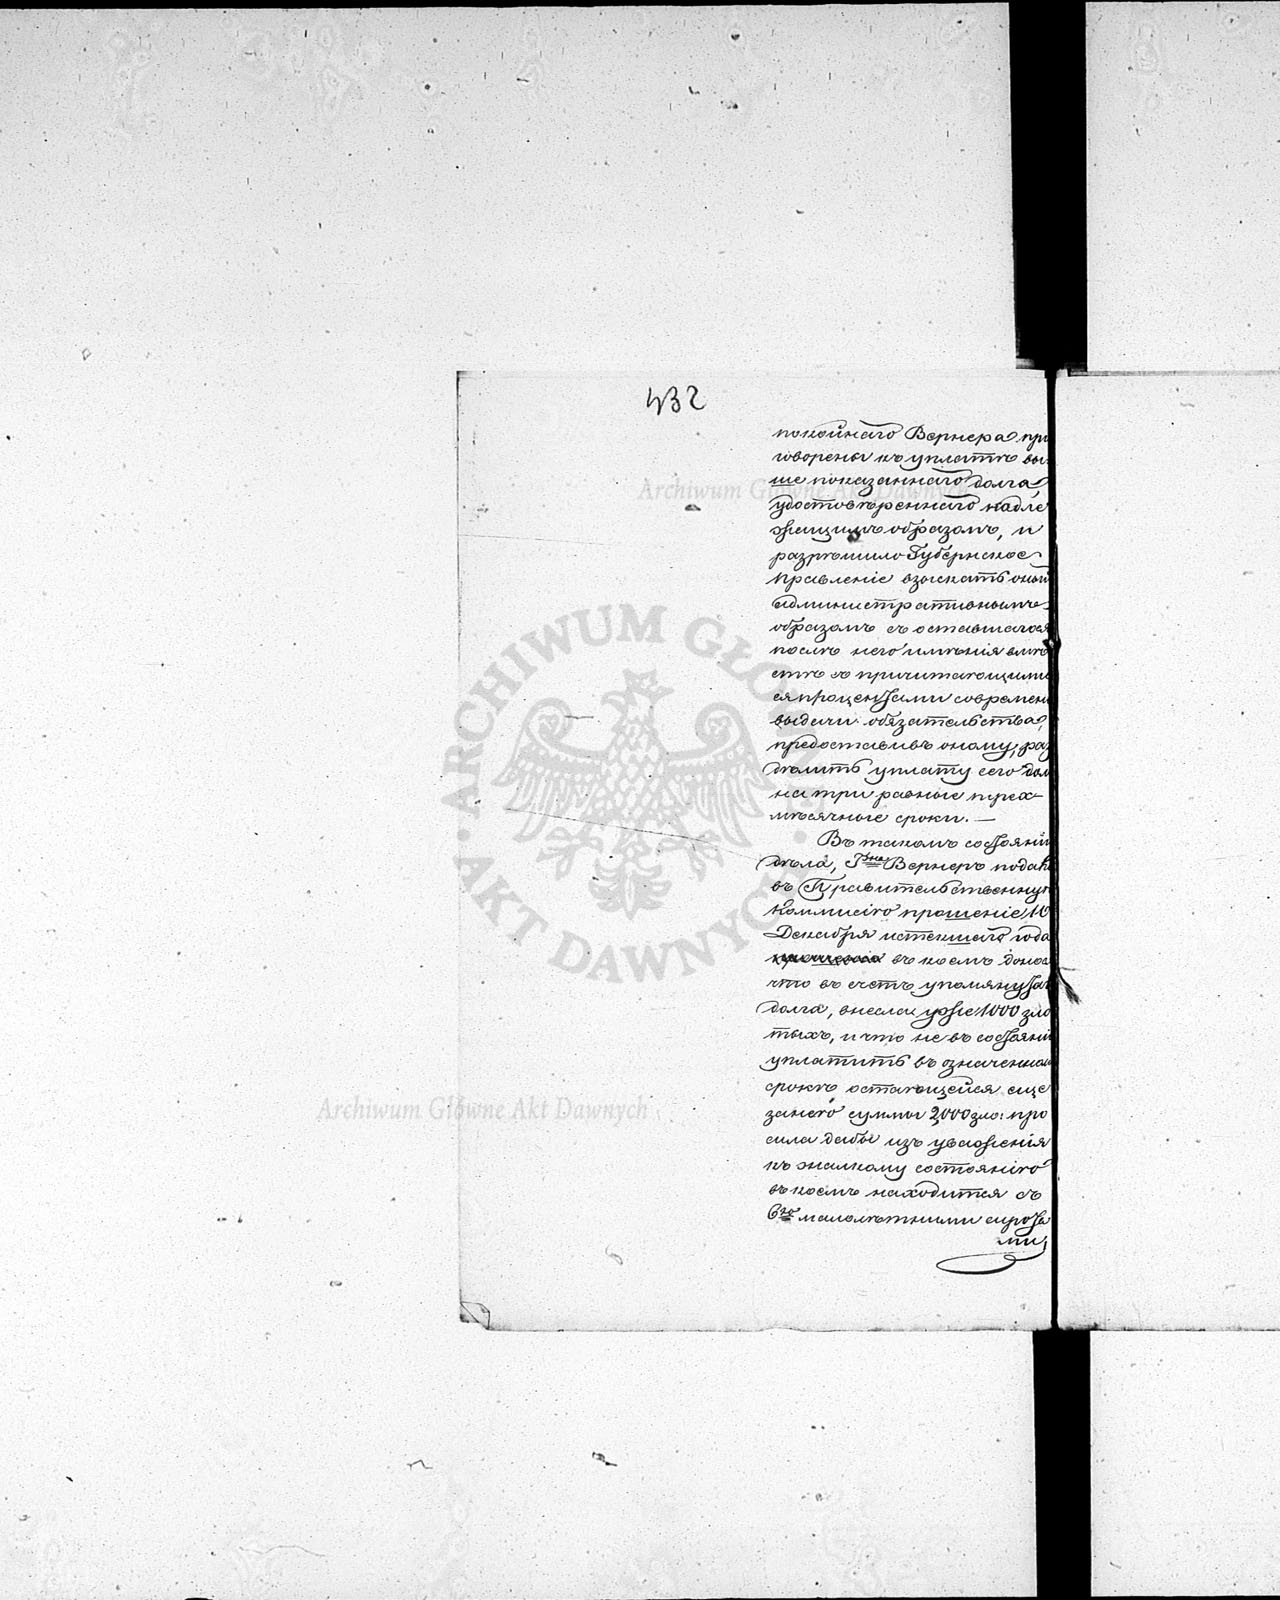 432
покойнаго Вернера при
говорены къ уплатѣ вы
ше показаннаго долга,
удостовѣреннаго надле
жащимъ образомъ, и
разрѣшило Губернское
Правленіе взыскать оный
административнымъ
образомъ съ оставшагося
послѣ него имѣнія вмѣ
стѣ съ причитающими
ся процентами со времени
выдачи обязательства,
предоставивъ оному, раз
дѣлить уплату сего дол
на три равные трех
мѣсячные сроки. —
Въ такомъ состояніи
дѣла, Гжа Вернеръ подала
въ Правительственную
Коммисію прошеніе 10
Декабря истекшаго года
въ коемъ донося
что въ счетъ упомянутаго
долга, внесла уже 1000 зло
тыхъ, и что не въ состояніи
уплатить въ означенномъ
срокѣ остающейся еще
за нею суммы 2,000 зло: про
сила дабы изъ уваженія
къ жалкому состоянію
въ коемъ находится съ
6ю малолѣтними сирота
ми,
Archiwum Główne Akt Dawnych
Archiwum Główne Akt Dawnych
ARCHIWUM GŁÓWNE · AKT DAWNYCH ·